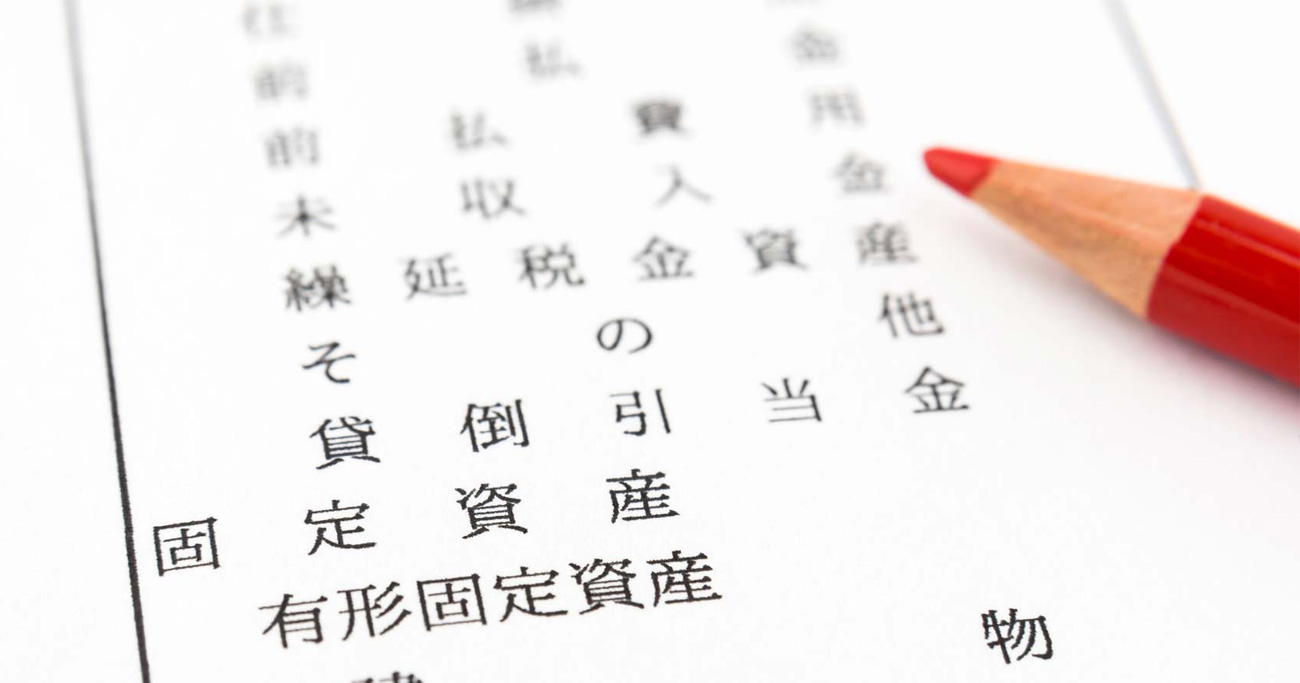 前 払 金
前 払 費 用
未 収 入 金
繰 延 税 金 資 産
そ の 他
貸 倒 引 当 金
固 定 資 産
有形固定資産
建 物